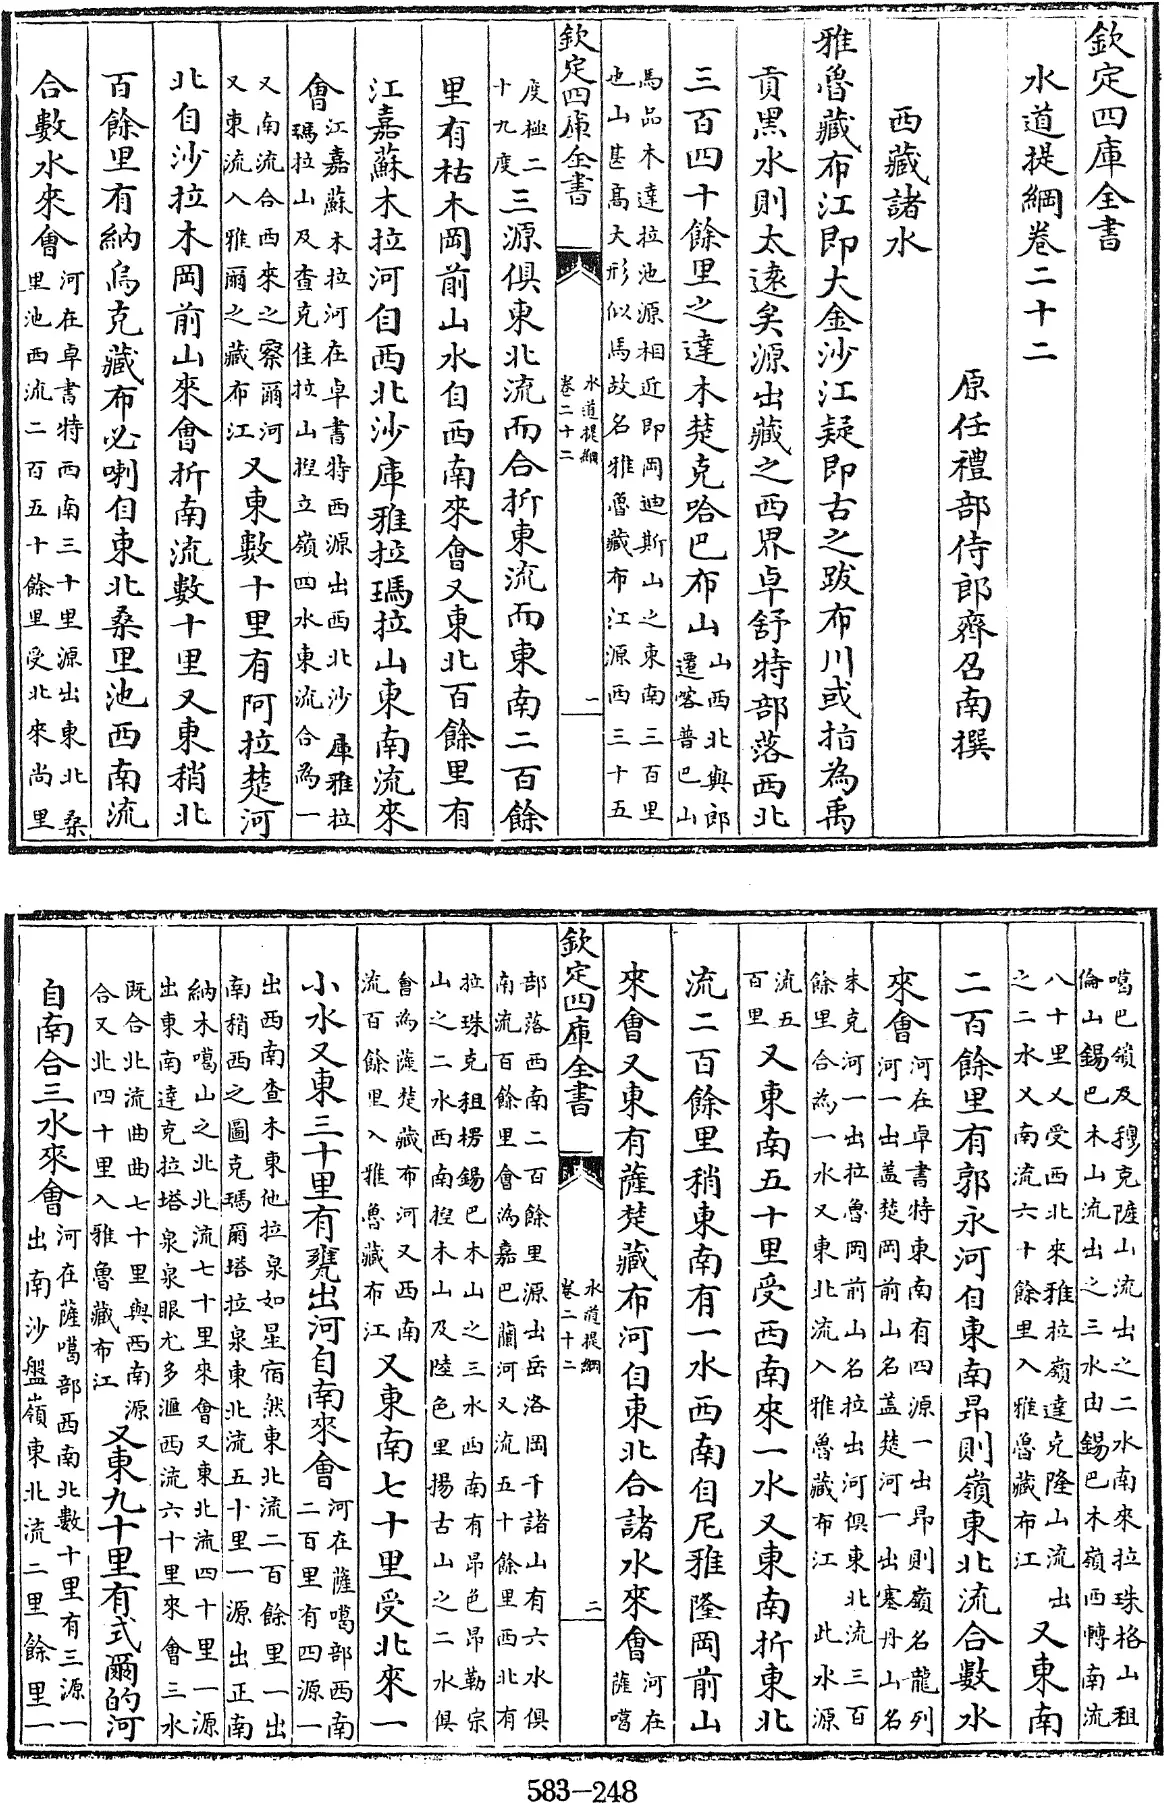 欽定四庫全書
水道提綱卷二十二
原任禮部侍郎齊召南撰
西藏諸水
雅魯藏布江即大金沙江疑即古之跋布川或指為禹
貢黑水則太遠矣源出藏之西界卓舒特部落西北
三百四十餘里之達木楚克哈巴布山山西北與郎
遷喀普巴山
馬品木達拉池源相近即岡迪斯山之東南三百里
也山甚髙大形似馬故名雅魯藏布江源西三十五
欽定四庫全書
水道提綱
卷二十二
一
度極二
十九度三源俱東北流而合折東流而東南二百餘
里有枯木岡前山水自西南來會又東北百餘里有
江嘉蘇木拉河自西北沙庫雅拉瑪拉山東南流來
會江嘉蘇木拉河在卓書特西源出西北沙庫雅拉
瑪拉山及查克佳拉山控立嶺四水東流合為一
又南流合西來之察爾河
又東流入雅爾之藏布江又東數十里有阿拉楚河
北自沙拉木岡前山來會折南流數十里又東稍北
百餘里有納烏克藏布必喇自東北桑里池西南流
合數水來會河在卓書特西南三十里源出東北桑
里池西流二百五十餘里受北來尚里
噶巴嶺及穆克隡山流出之二水南來拉珠格山租
倫山錫巴木山流出之三水由錫巴木嶺西轉南流
八十里又受西北來雅拉嶺達克隆山流出
之二水又南流六十餘里入雅魯藏布江又東南
二百餘里有郭永河自東南昂則嶺東北流合數水
來會河在卓書特東南有四源一出昂則嶺名龍列
河一出蓋楚岡前山名蓋楚河一出塞丹山名
朱克河一出拉魯岡前山名拉出河俱東北流三百
餘里合為一水又東北流入雅魯藏布江此水源
流五
百里又東南五十里受西南來一水又東南折東北
流二百餘里稍東南有一水西南自尼雅隆岡前山
來會又東有薩楚藏布河自東北合諸水來會河在
薩噶
欽定四庫全書
水道提綱
卷二十二
二
部落西南二百餘里源出岳洛岡千諸山有六水俱
南流百餘里會為嘉巴蘭河又流五十餘里西北有
拉珠克租楞錫巴木山之三水西南有昂色昂勒宗
山之二水西南控木山及陸色里揚古山之二水俱
會為薩楚藏布河又西南
流百餘里入雅魯藏布江又東南七十里受北來一
小水又東三十里有甕出河自南來會河在薩噶部西南
二百里有四源一
出西南查木東他拉泉如星宿然東北流二百餘里一出
南稍西之圖克瑪爾塔拉泉東北流五十里一源出正南
納木噶山之北北流七十里來會又東北流四十里一源
出東南達克拉塔泉泉眼尤多滙西流六十里來會三水
既合北流曲曲七十里與西南源
合又北四十里入雅魯藏布江又東九十里有式爾的河
自南合三水來會河在薩噶部西南北數十里有三源一
出南沙盤嶺東北流二里餘里一
583-248